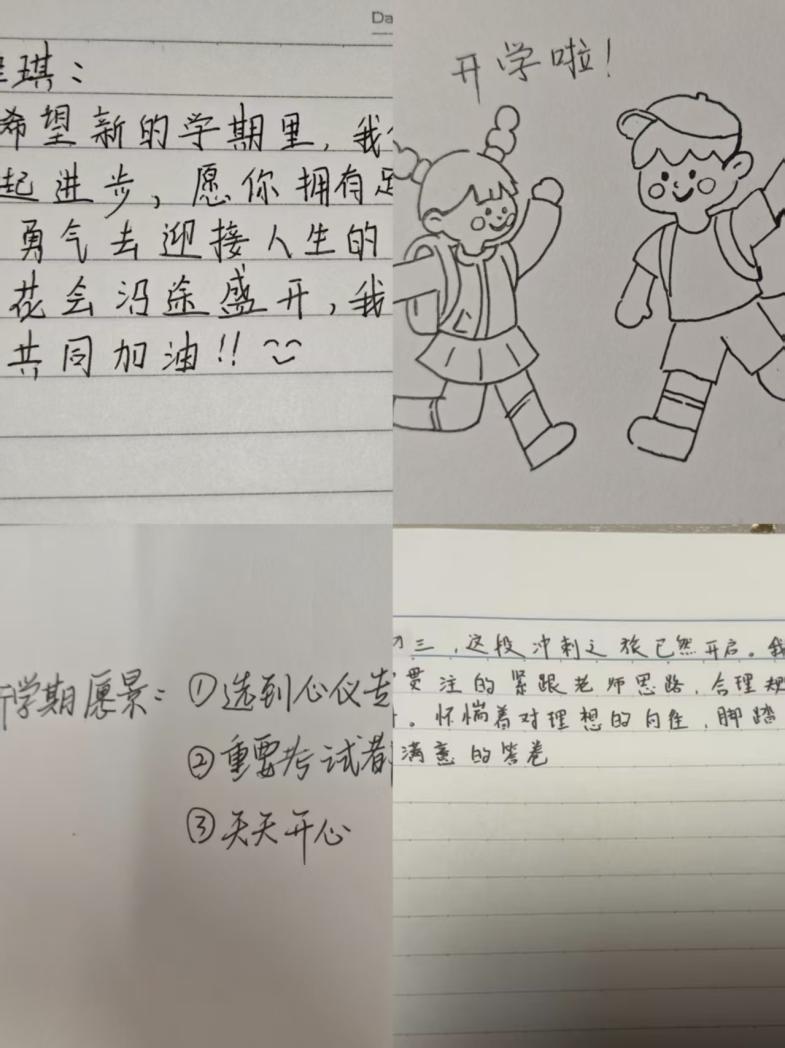 Da
琪：
希望新的学期里，我
起进步，愿你拥有足
勇气去迎接人生的
花会沿途盛开，我
共同加油!!
开学啦！
学期愿景：①选到心仪
②重要考试都
③天天开心
三，这段冲刺之旅已然开启。我
贯注的紧跟老师思路，合理规
。怀惴着对理想的向往，脚踏
满意的答卷